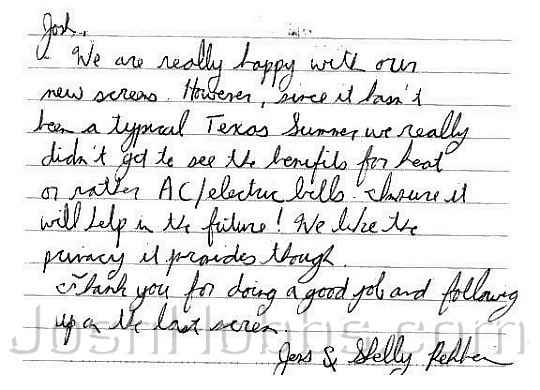 Josh,
We are really happy with our
new screens. However, since it hasn't
been a typical Texas Summer we really
didn't get to see the benefits for heat
or rather AC/electric bills. I'm sure it
will help in the future! We like the
privacy it provides though.
Thank you for doing a good job and following
up on the last screen
& Shelly
JoshHobbs.com